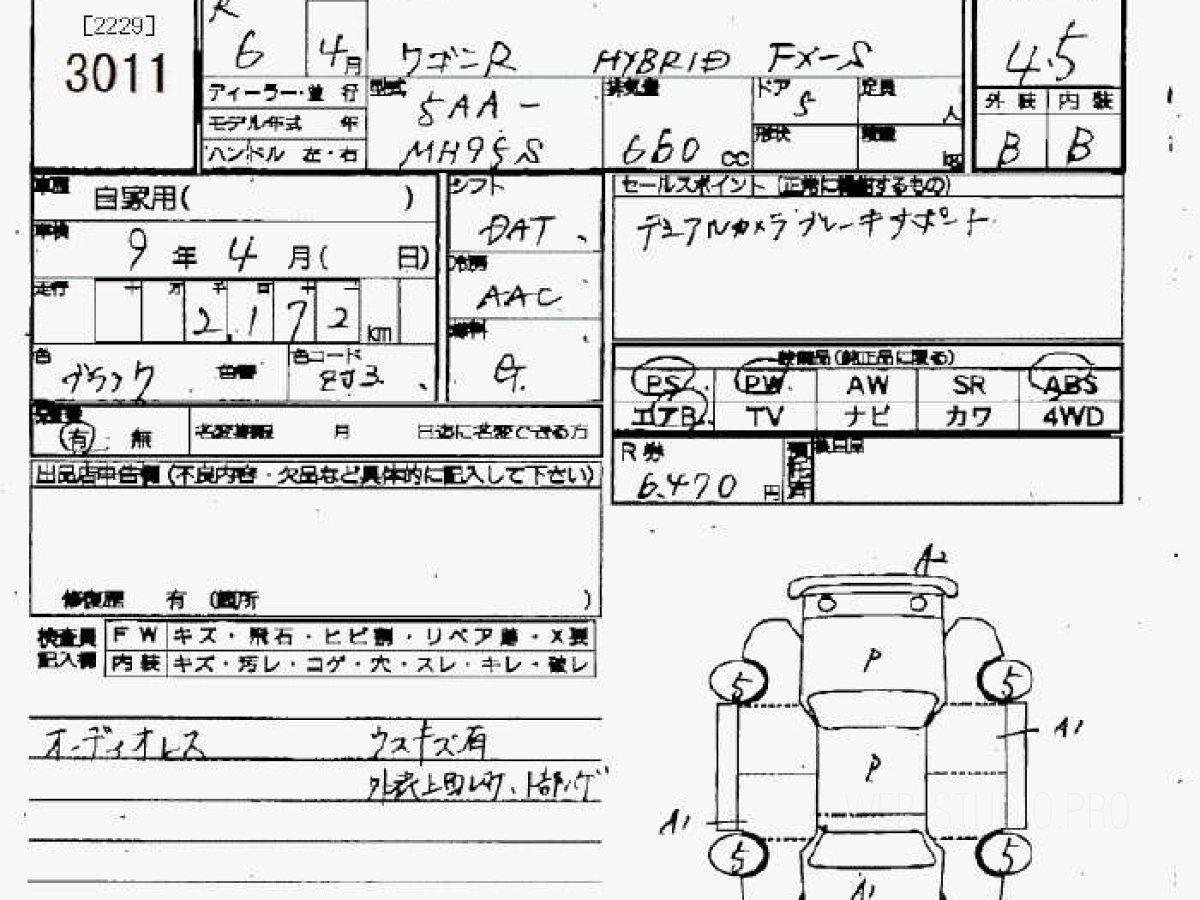 [2229]
3011
R
6 4月
ワゴンR HYBRID FX-S
4.5
ディーラー・並 行
型式
5AA-
MH95S
排気量
660 CC
ドア
5
定員
人
形状
積量
kg
外 装 内 装
B B
モデル年式 年
ハンドル 左・右
車歴
自家用( )
車検
9 年 4 月( 日)
走行
十 万 千 百 十 一
2,172 km
色
ブラック
色替
色コード
ZJ3
シフト
DAT
冷房
AAC
燃料
G
セールスポイント (正常に機能するもの)
デュアルカメラブレーキサポート
装備品(純正品に限る)
PS PW AW SR ABS
エアB TV ナビ カワ 4WD
保証書
有 無
名変期限 月 日迄に名変できる方
R 券
6,470 円
預託済
後日屋
出品店申告欄 (不良内容・欠品など具体的に記入して下さい)
修復歴 有 (箇所 )
検査員
記入欄
F W キズ・飛石・ヒビ割・リペア跡・X要
内 装 キズ・汚レ・コゲ・穴・スレ・キレ・破レ
オーディオレス ウスキズ有
A2
P
5 5
A1
P
A1
5 5
A1
WEB STUDIO.PRO